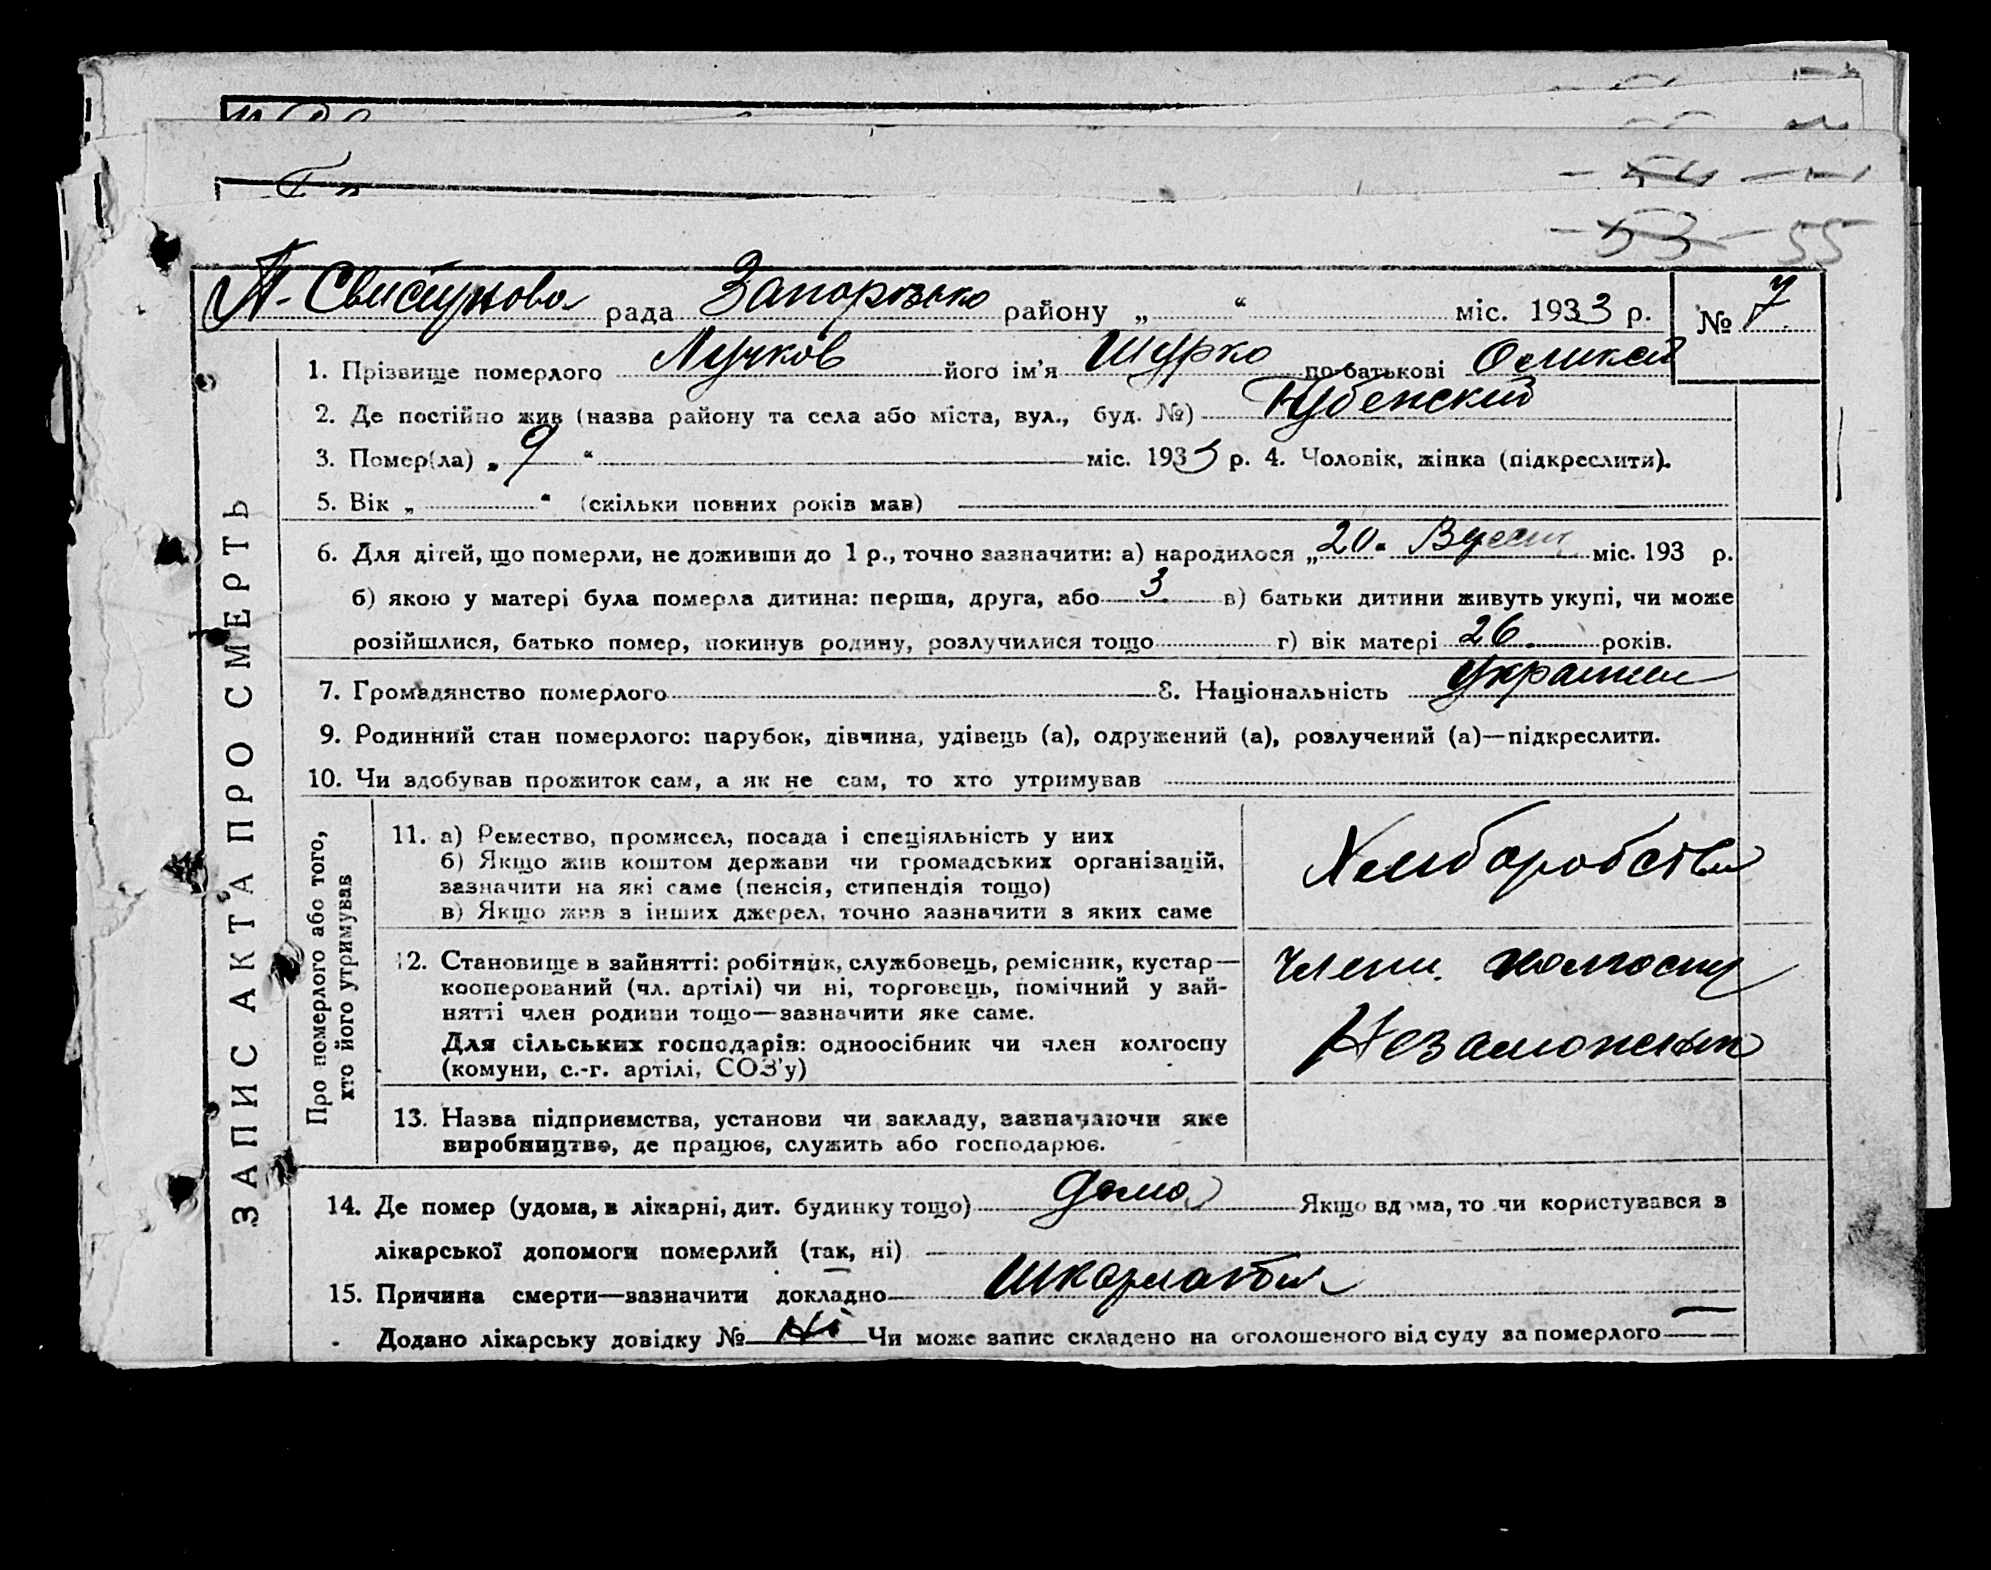 53 - 55
П. Свистунова рада Запорізько району „ “ міс. 1933 р. № 7
ЗАПИС АКТА ПРО СМЕРТЬ
1. Прізвище померлого Лучков його ім’я Шурко по-батькові
2. Де постійно жив (назва району та села або міста, вул., буд. №)
3. Помер(ла) „ 9 “ міс. 1933 р. 4. Чоловік, жінка (підкреслити).
5. Вік „ “ (скільки повних років мав)
6. Для дітей, що померли, не доживши до 1 р., точно зазначити: а) народилося „ 20 “ міс. 193 р.
б) якою у матері була померла дитина: перша, друга, або 3 в) батьки дитини живуть укупі, чи може
розійшлися, батько помер, покинув родину, розлучилися тощо г) вік матері 26 років.
7. Громадянство померлого 8. Національність
9. Родинний стан померлого: парубок, дівчина, удівець (а), одружений (а), розлучений (а)—підкреслити.
10. Чи здобував прожиток сам, а як не сам, то хто утримував
Про померлого або того,
хто його утримував
11. а) Ремество, промисел, посада і спеціяльність у них
б) Якщо жив коштом держави чи громадських організацій,
зазначити на які саме (пенсія, стипендія тощо)
в) Якщо жив з інших джерел, точно зазначити з яких саме
Хлиборобство
12. Становище в зайнятті: робітник, службовець, ремісник, кустар—
кооперований (чл. артілі) чи ні, торговець, помічний у зай-
нятті член родини тощо—зазначити яке саме.
Для сільських господарів: одноосібник чи член колгоспу
(комуни, с.-г. артілі, СОЗ’у)
Члени колгоспу
Незаможнык
13. Назва підприємства, установи чи закладу, зазначаючи яке
виробництво, де працює, служить або господарює.
14. Де помер (удома, в лікарні, дит. будинку тощо) дома Якщо вдома, то чи користувався з
лікарської допомоги померлий (так, ні)
15. Причина смерти—зазначити докладно Шкарлатин
Додано лікарську довідку № Ні Чи може запис складено на оголошеного від суду за померлого —